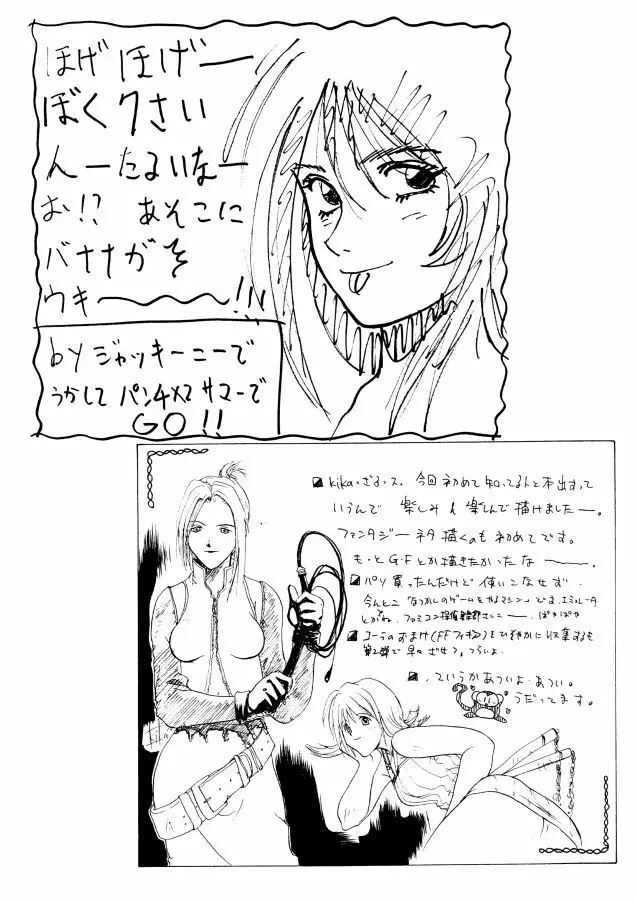 ほげほげー
ぼくクさい
んーたるいなー
お!? あそこに
バナナがそ
ウキー〜〜〜!!!
by ジャッキーニーで
うかして パンチメ2 サマーで
GO!!
kika・ざるっス. 今回 初めて 知ってるんと本出すって
いうんで 楽しみ 楽しんで描けましたー。
ファンタジーネタ 描くのも 初めてです。
もっと G・Fとか描きたかったなー.
パソ買ったんだけど 使いこなせず.
今んとこ「なつかしのゲームをやるマシン」どす. エミュレータ
とかね. ファミコン探偵 ー. ぱやぱや
コーラのおまけ(FFフィギュア)をひそやかに収集するも
第2弾で 早 ざせつ. つらいよ.
. ていうかあついよ・あつい。
うだってます。